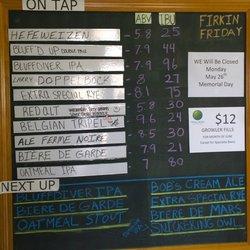 ON TAP
ABV IBU
FIRKIN
FRIDAY
HEFEWEIZEN - 5.8 25
BLUFF'D UP - 7.9 44
BLUFFDIVER IPA - 7.9 96
LARRY DOPPELBOCK - 8 27
EXTRA SPECIAL RYE - 8.1 75
RED ALT 5.8 30
BELGIAN TRIPEL - 9.6 24
ALE FERME NOIRE - 8.5 30
BIERE DE GARDE - 7.9 31
OATMEAL IPA 7 80
WE Will be Closed
Monday
May 26th
Memorial Day
$12
GROWLER FILLS
FOR MONTH OF JUNE
Except for Specialty Beers
NEXT UP
BLUFFDIVER IPA
BIERE DE GARDE
OATMEAL STOUT
BOB'S CREAM ALE
EXTRA SPECIAL RYE
BIERE DE MARS
SNICKERING OWL